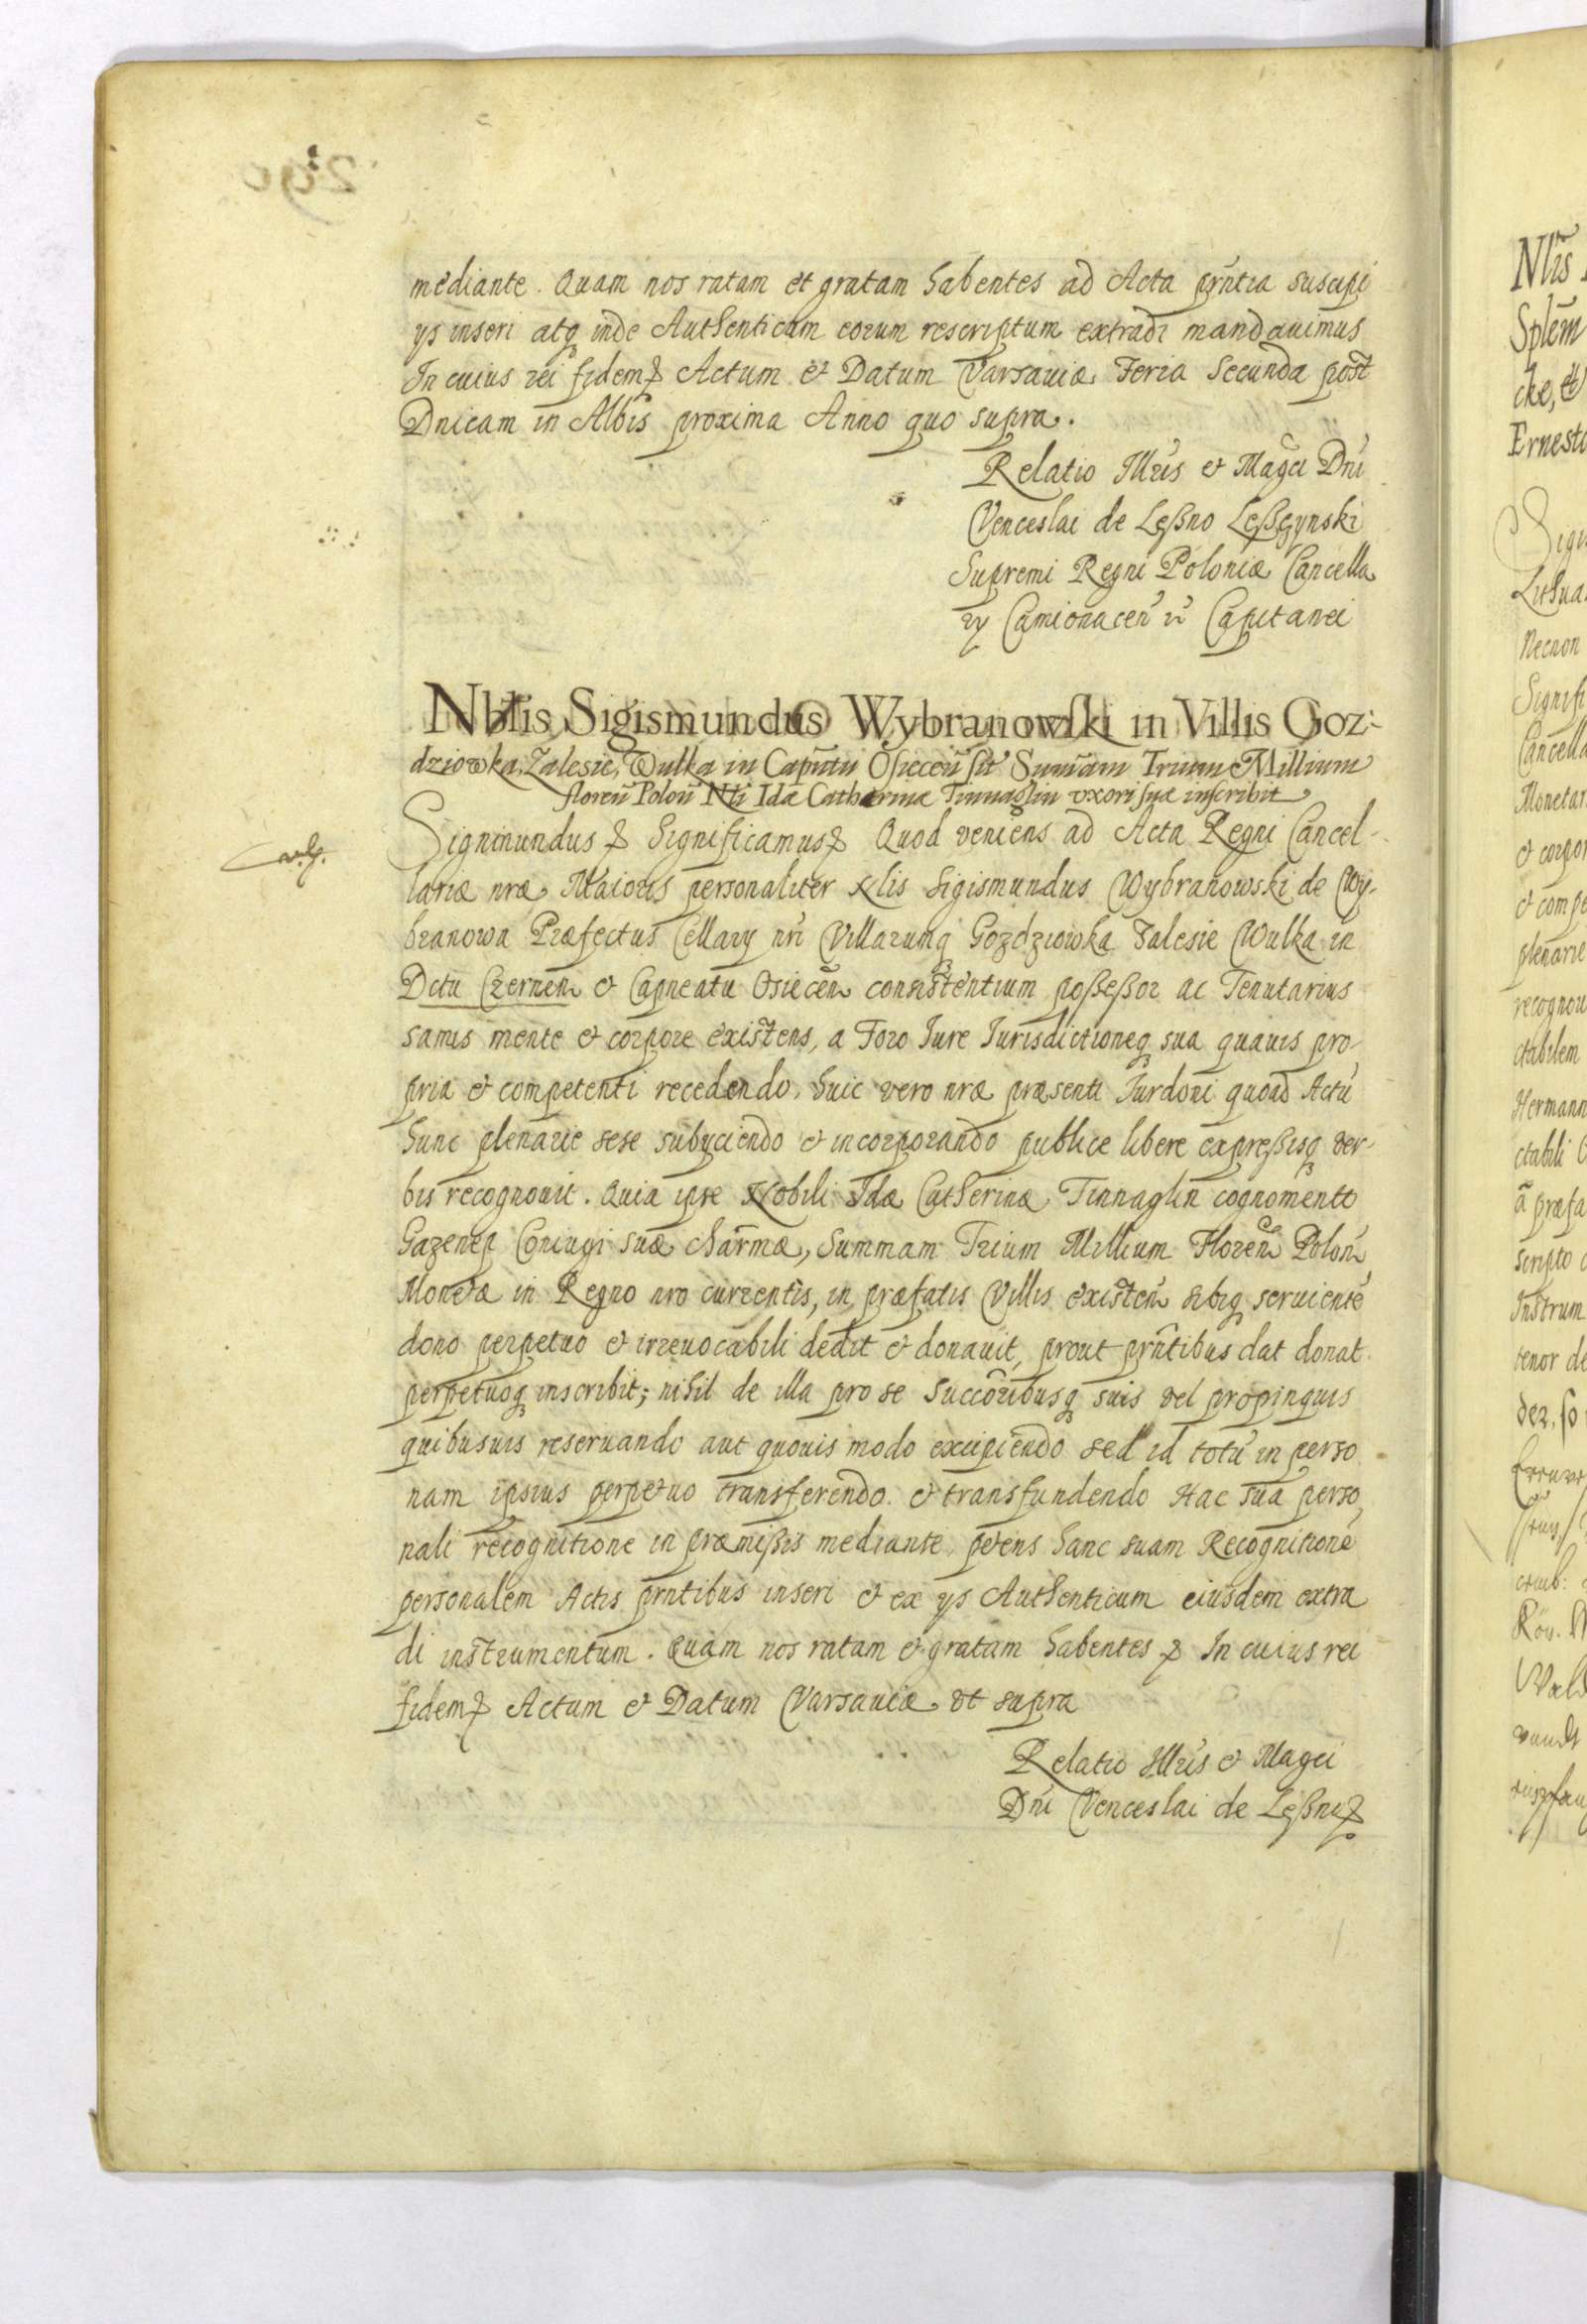 mediante. Quam nos ratam et gratam habentes ad Acta prñtia suscipi
ijs inseri atq inde Authenticum eorum rescriptum extradi mandauimus
In cuius rei fidem Actum et Datum Varsauiæ Feria Secunda post
Dnicam in Albis proxima Anno quo supra.
Relatio Illris et Magci Dni
Venceslai de Leßno Leßczynski
Supremi Regni Poloniæ Cancella
rij Camionacen Capitanei
Nblis Sigismundus Wybranowski in Villis Goz-
dziowka, Zalesie, Wulka in Capntu Osiecen sit Summam Trium Millium
floren Polon Nli Idæ Catharinæ Tinnaglin vxori suæ inscribit
Sigmimundus Significamus Quod veniens ad Acta Regni Cancel-
lariæ nræ Maioris personaliter Nlis Sigismundus Wybranowski de Wy-
branowa Præfectus Cellarij nri Villarumq Gozdziowka Zalesie Wulka in
Dctu Czernen et Capneatu Osiecen consistentium poßeßor ac Tenutarius
sanus mente et corpore existens, a Foro Jure Jurisdictioneq sua quauis pro-
pria et competenti recedendo, huic vero nræ præsenti Jurdoni quoad Actũ
hunc plenarie sese subijciendo et incorporando publice libere expreßisq ver-
bis recognouit. Quia ipse Nobili Idæ Catherinæ Tinnaglin cognomento
Gazenep Coniugi suæ charmæ, Summam Trium Millium Floren Polon
Monetæ in Regno nro currentis, in præfatis Villis existen sibiq seruiente
dono perpetuo et irreuocabili dedit et donauit, prout prntibus dat donat
perpetuoq inscribit; nihil de illa pro se succoribusq suis vel propinquis
quibusuis reseruando aut quouis modo excipiendo sed id totũ in perso
nam ipsius perpetuo transferendo et transfundendo Hac sua perso
nali recognitione in præmißis mediante, petens hanc suam Recognitione
personalem Actis prntibus inseri et ex ijs Authenticum eiusdem extra
di instrumentum. Quam nos ratam et gratam habentes In cuius rei
fidem Actum et Datum Varsauiæ vt supra
Relatio Illris et Magci
Dni Venceslai de Leßno